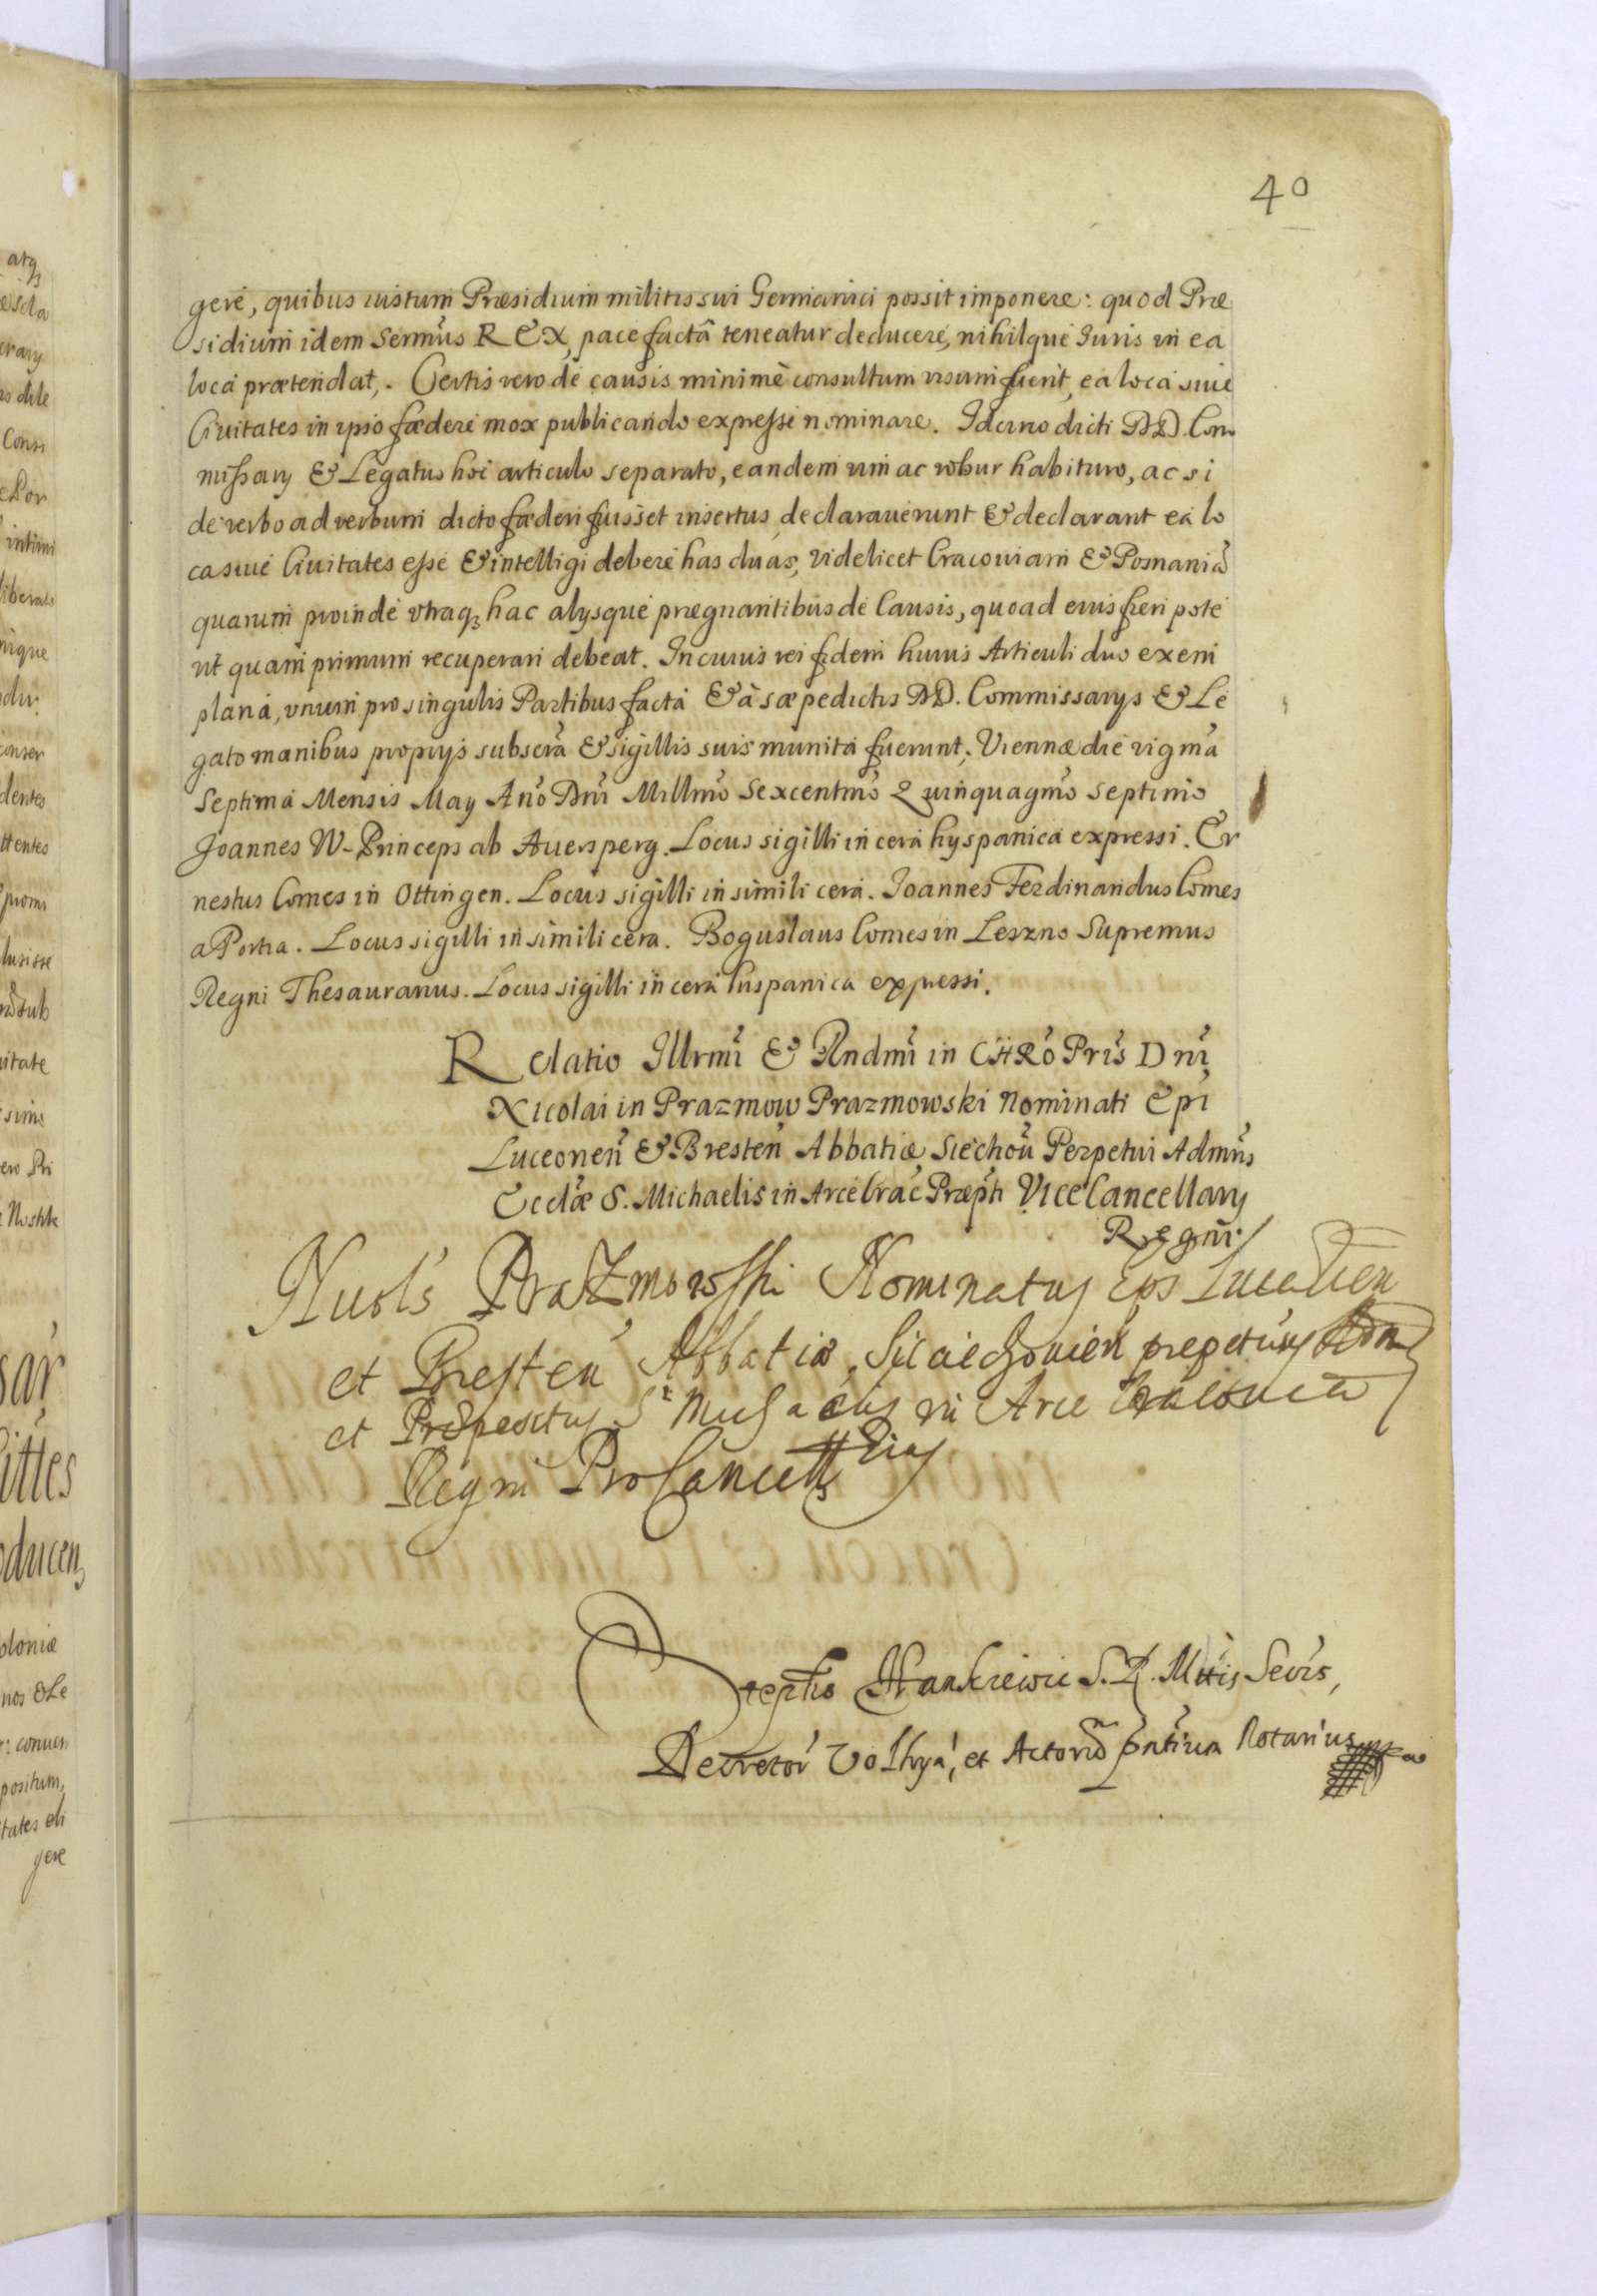 40
gere, quibus iustum Præsidium militis sui Germanici possit imponere: quod Præ
sidium idem Sermus REX, pace factâ teneatur deducere, nihilque Iuris in ea
loca prætendat. Certis vero de causis minimè consultum visum fuerit, ea loca siue
Ciuitates in ipso fœdere mox publicando expresse nominare. Idcirco dicti DD. Com
missarij & Legatus hoc articulo separato, eandem vim ac robur habituro, ac si
de verbo ad verbum dicto fœderi fuisset insertus, declarauerunt & declarant ea lo
ca siue Ciuitates esse & intelligi debere has duas, videlicet Cracouiam & Posnaniã
quarum proinde vtraq, hac alijsque prægnantibus de Causis, quoad eius fieri pote
rit quam primum recuperari debeat. In cuius rei fidem huius Articuli duo exem
plaria, vnum pro singulis Partibus facta & à sæpedictis DD. Commissarijs & Le
gato manibus proprijs subscra & sigillis suis munita fuerunt. Viennæ die vigma
Septima Mensis May Ano Dni Millmo Sexcentmo Quinquagmo Septimo
Joannes W-Princeps ab Auersperg. Locus sigilli in cera hyspanica expressi. Er
nestus Comes in Ottingen. Locus sigilli in simili cera. Joannes Ferdinandus Comes
a Portia. Locus sigilli in simili cera. Boguslaus Comes in Leszno Supremus
Regni Thesaurarius. Locus sigilli in cera hispanica expressi.
Relatio Illrmi & Rndmi in CHRo Pris Dni
Nicolai in Prazmow Prazmowski Nominati Epi
Luceorien & Bresten Abbatiæ Siechou Perpetui Admris
Eccliæ S. Michaelis in Arce Crac Præpti ViceCancellarij
Regni
Nicols Prazmowski Nominatus Eps Luceorien
et Bresten Abbatiæ Sieciechouien perpetuus Adm
et Præpositus S. Michaelis in Arce Cracouien
Regni ProCancells
Stephs Hankiewic S. R. Mttis Secrs,
Decretor Volhyn, et Actorũ pntium Notarius